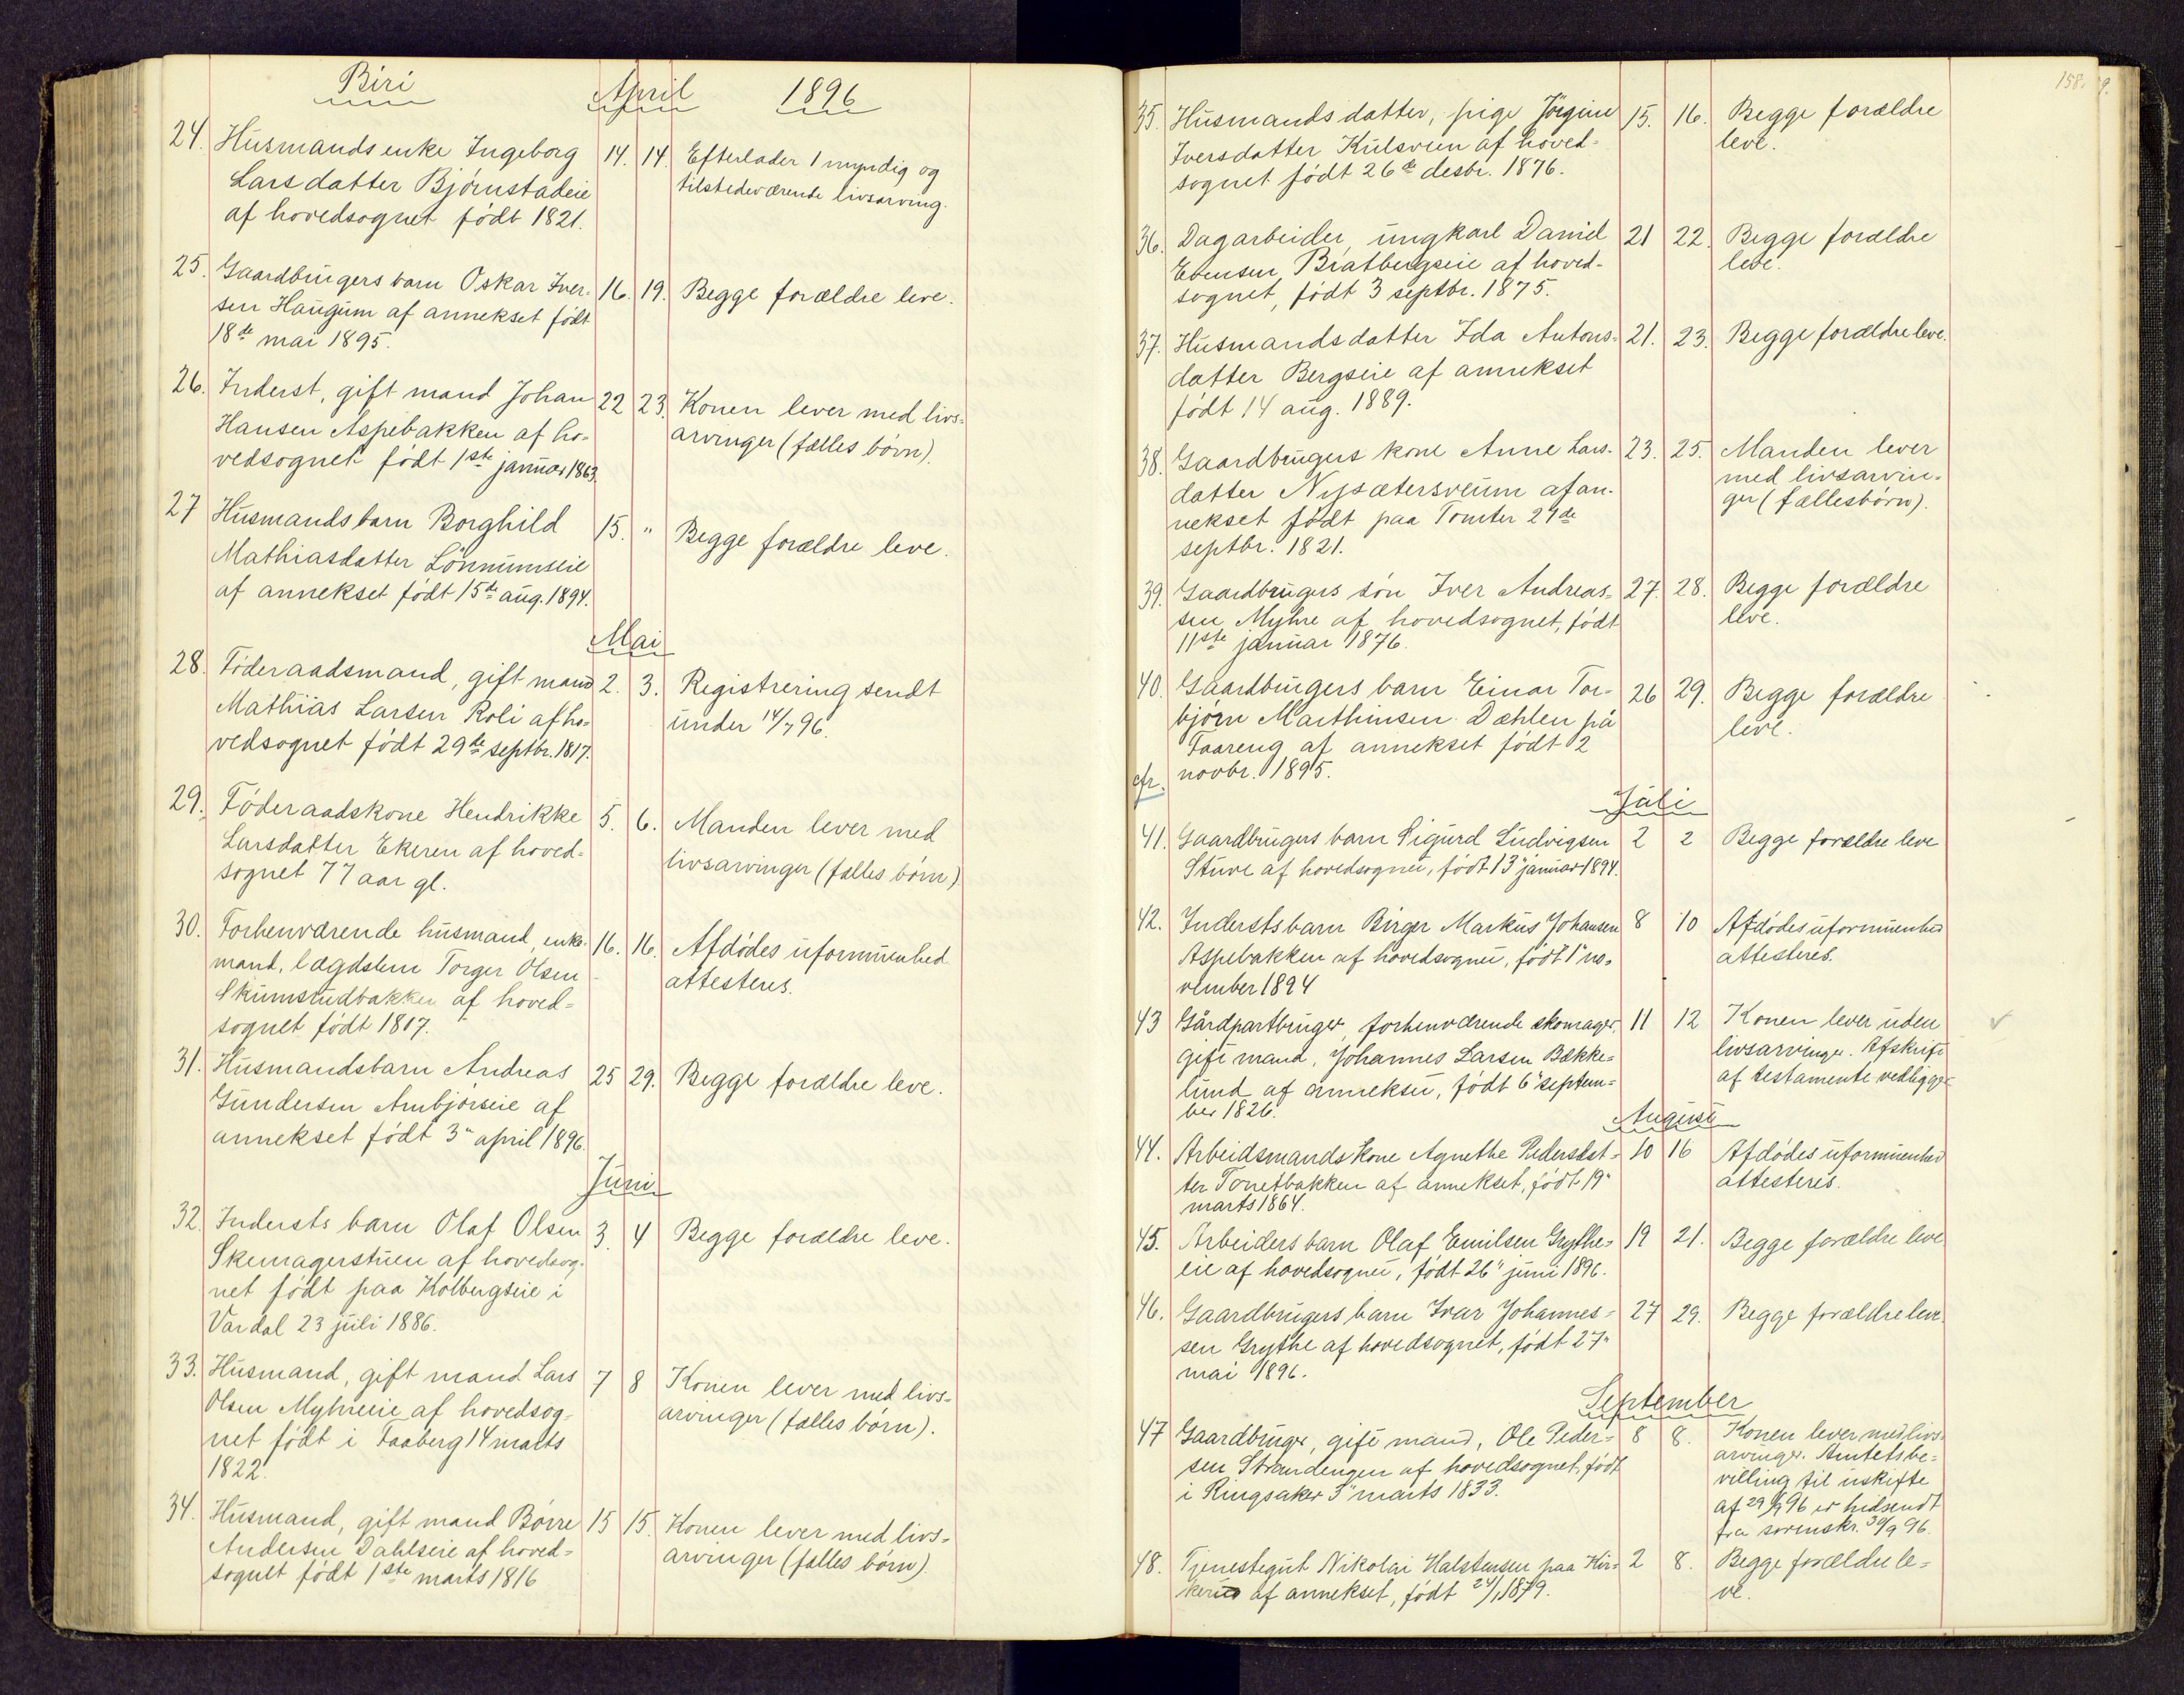 Biri April 1896
24. Husmandsenke Ingeborg 14. 14. Efterlader 1 myndig og
Larsdatter Bjørnstadeie tilstedeværende livsarving.
af hovedsognet født 1821.
25. Gaardbrugers barn Oskar Iver- 16. 19. Begge forældre leve.
sen Haugum af annekset født
18de mai 1895.
26. Inderst, gift mand Johan 22 23. Konen lever med livs-
Hansen Aspebakken af ho- arvinger (fælles børn).
vedsognet født 1ste januar 1863.
27 Husmandsbarn Borghild 15. " Begge forældre leve.
Mathiasdatter Lønnumseie
af annekset født 15de aug. 1894.
Mai
28. Føderaadsmand, gift mand 2. 3. Registrering sendt
Mathias Larsen Roli af ho- under 14/7 96.
vedsognet født 29de septbr. 1817.
29. Føderaadskone Hendrikke 5. 6. Manden lever med
Larsdatter Ekeren af hoved- livsarvinger (fælles børn).
sognet 77 aar gl.
30. Forhenværende husmand, enke- 16. 16. Afdødes uformuenhed
mand, lægdslem Torger Olsen attesteres.
Skumsrudbakken af hoved-
sognet født 1807.
31. Husmandsbarn Andreas 25 29. Begge forældre leve.
Gundersen Arnbjørseie af
annekset født 3" april 1896.
Juni
32. Indersts barn Olaf Olsen 3. 4 Begge forældre leve.
Skemagerstuen af hovedsog-
net født paa Kolbergseie i
Vardal 23 juli 1886.
33. Husmand, gift mand Lars 7 8 Konen lever med livs-
Olsen Myhreeie af hovedsog- arvinger (fælles børn).
net født i Faaberg 14 marts
1822.
34. Husmand, gift mand Børre 15 15. Konen lever med livs-
Andersen Dahlseie af hoved- arvinger (fælles børn)
sognet født 1ste marts 1816
158. 9.
35. Husmandsdatter, pige Jørgine 15. 16. Begge forældre
Iversdatter Kulsveen af hoved- leve.
sognet født 26de desbr. 1876.
36. Dagarbeider, ungkarl Daniel 21 22. Begge forældre
Ebensen Bratbergseie af hoved- leve.
sognet, født 3 septbr. 1875.
37. Husmandsdatter Ida Antons- 21. 23. Begge forældre leve.
datter Bergseie af annekset
født 14 aug. 1889.
38. Gaardbrugers kone Anne Lars- 23. 25. Manden lever
datter Nysætersveum af an- med livsarvin-
nekset født paa Tomter 27de ger (fællesbørn).
septbr. 1821.
39. Gaardbrugers søn Iver Andreas- 27. 28. Begge forældre
sen Myhre af hovedsognet, født leve.
11ste januar 1876.
40. Gaardbrugers barn Einar Tor- 26 29. Begge forældre
bjørn Marthinsen Dæhlen på leve.
Faareng af annekset født 2
cfr. novbr. 1895.
Juli
41. Gaardbrugers barn Sigurd Ludvigsen 2 2 Begge forældre leve
Stuve af hovedsognet, født 13" januar 1894.
42. Inderstsbarn Birger Markus Johansen 8 10 Afdødes uformuenhed
Aspebakken af hovedsognet, født 1" no- attesteres.
vember 1894
43 Gårdpartbruger, forhenværende skomager, 11 12 Konen lever uden
gift mand, Johannes Larsen Bække- livsarvinger. Afskrift
lund af annekset, født 6" septem- af testamente vedligger
ber 1826.
August
44. Arbeidsmands kone Agnethe Pedersdat- 10 16 Afdødes uformuenhed
ter Tonetbakken af annekset, født 19" attesteres.
marts 1864.
45. Arbeiders barn Olaf Emilsen Grythe- 19 21. Begge forældre leve
eie af hovedsognet, født 26" juni 1896.
46. Gaardbrugers barn Ivar Johannes- 27 29. Begge forældre leve.
sen Grythe af hovedsognet, født 27"
mai 1896.
September
47 Gaardbruger, gift mand, Ole Peder- 8 8. Konen lever med livs-
sen Strandengen af hovedsognet, født arvinger. Amtets be-
i Ringsaker 3" marts 1833. villing til uskifte
af 29/9 96 er hidsendt
fra sorenskr. 30/9 96.
48. Tjenestegut Nikolai Halstensen paa Kir- 2 8. Begge forældre le-
kerud af annekset, født 24/1 1879. ve.